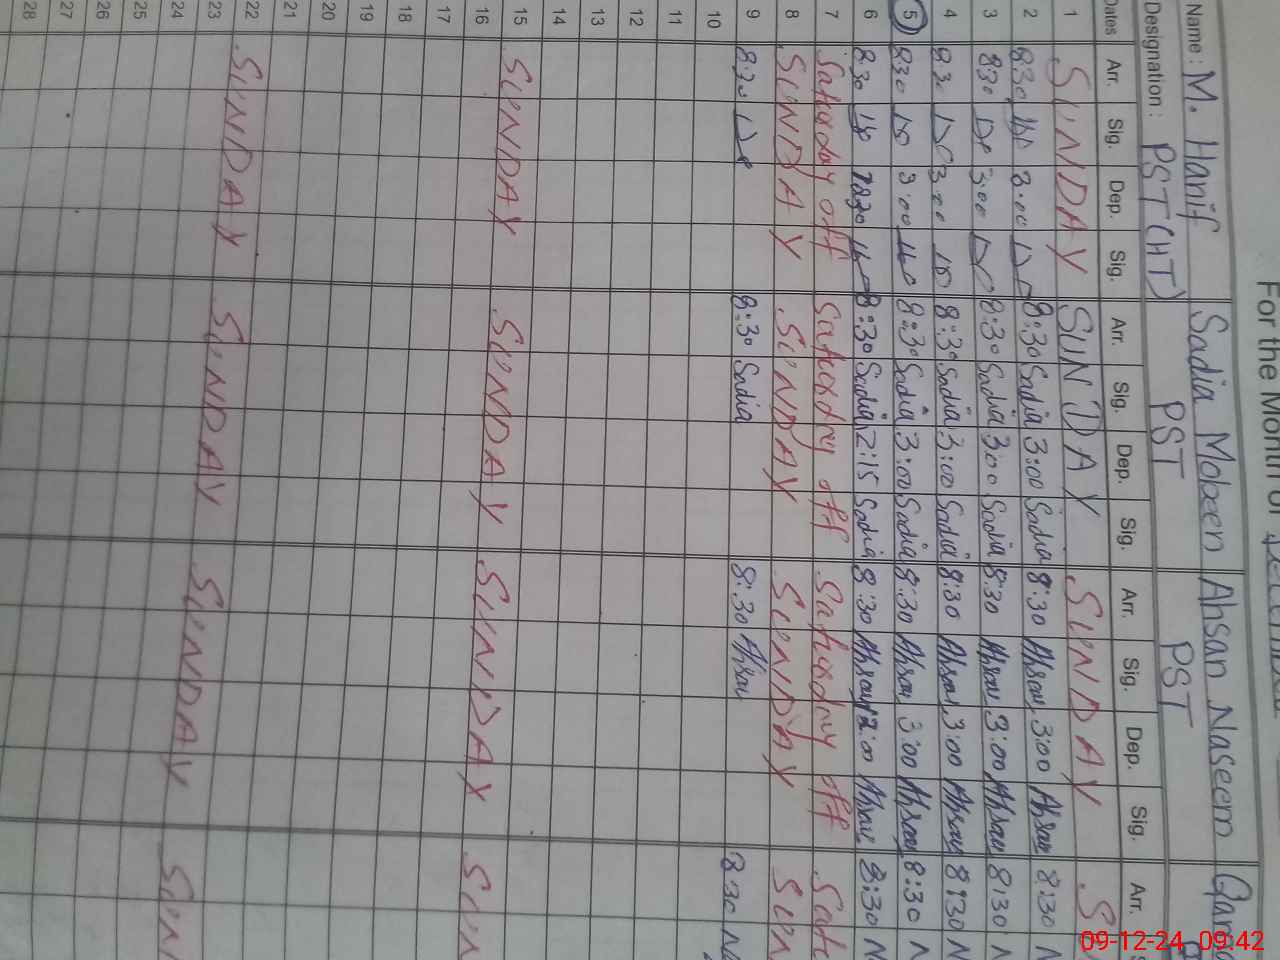 For the Month of
Name : M. Hanif Sadia Mobeen Ahsan Naseem
Designation : PST (HT) PST PST
Dates Arr. Sig. Dep. Sig. Arr. Sig. Dep. Sig. Arr. Sig. Dep. Sig. Arr.
1 SUNDAY SUNDAY SUNDAY S
2 8:30 3:00 8:30 Sadia 3:00 Sadia 8:30 Ahsan 3:00 Ahsan 8:30 N
3 830 3:00 8:30 Sadia 3:00 Sadia 8:30 Ahsan 3:00 Ahsan 8:30 N
4 830 3:00 8:30 Sadia 3:00 Sadia 8:30 Ahsan 3:00 Ahsan 8:30 N
5 830 3:00 8:30 Sadia 3:00 Sadia 8:30 Ahsan 3:00 Ahsan 8:30 N
6 8:30 8:30 Sadia 2:15 Sadia 8:30 Ahsan Ahsan 8:30 N
7 Saturday off Saturday off Saturday off Sat
8 SUNDAY SUNDAY SUNDAY SUN
9 8:30 8:30 Sadia 8:30 Ahsan 8:30
10
11
12
13
14
15 SUNDAY SUNDAY SUNDAY SUN
16
17
18
19
20
21
22 SUNDAY SUNDAY SUNDAY SUN
23
24
25
26
27
28
09-12-24 09:42